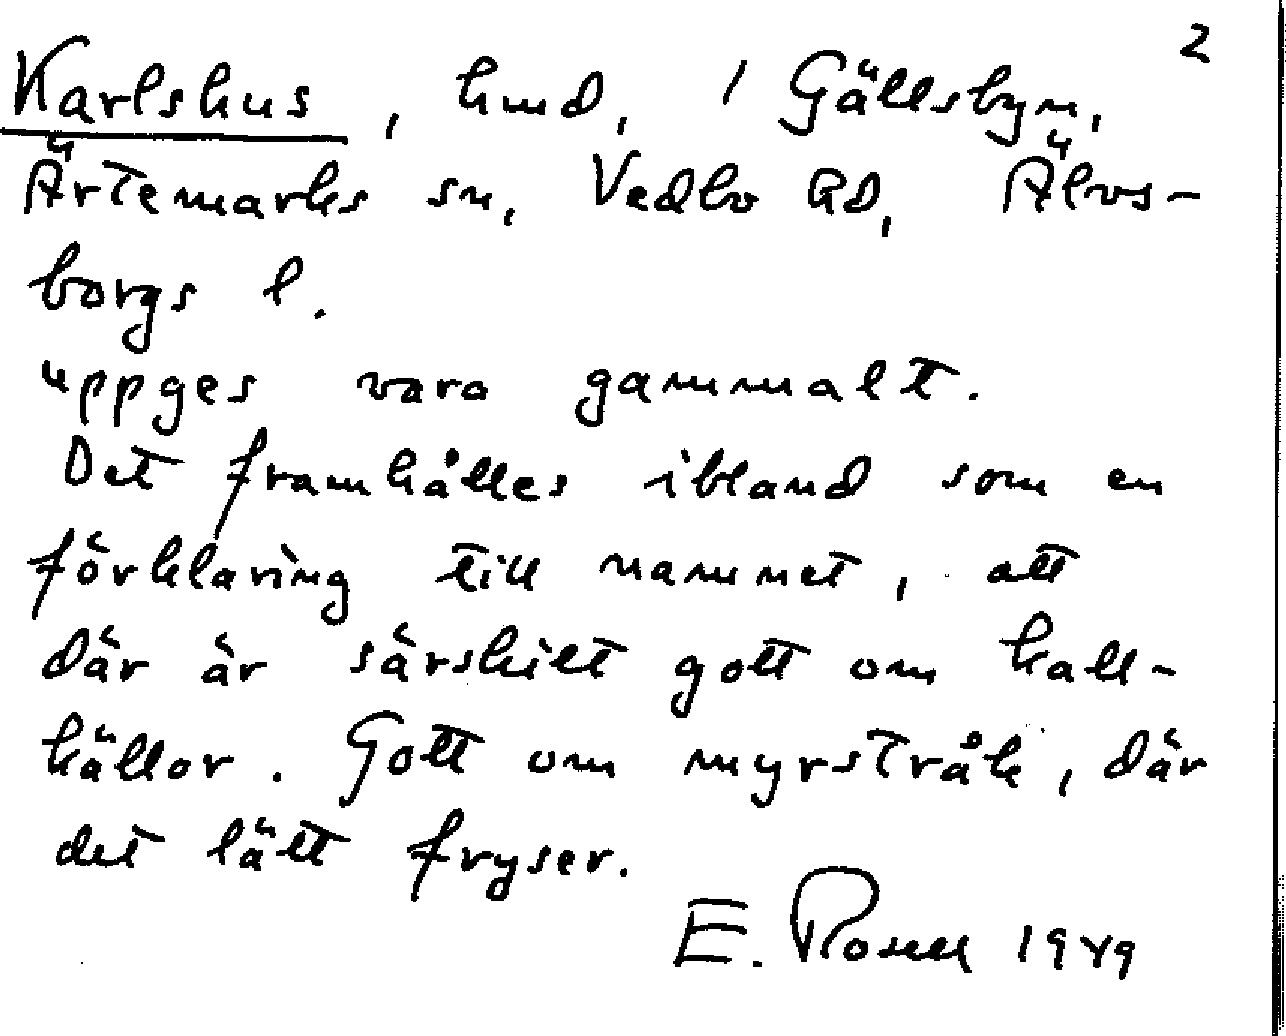 2
Karlshus, hmd, i Gällsbyn,
Ärtemarks sn, Vedbo hd, Älvs-
borgs l.
uppges vara gammalt.
Det framhålles ibland som en
förklaring till namnet, att
där är särskilt gott om kall-
källor. Gott om myrstråk, där
det lätt fryser.
E. Rosell 1949